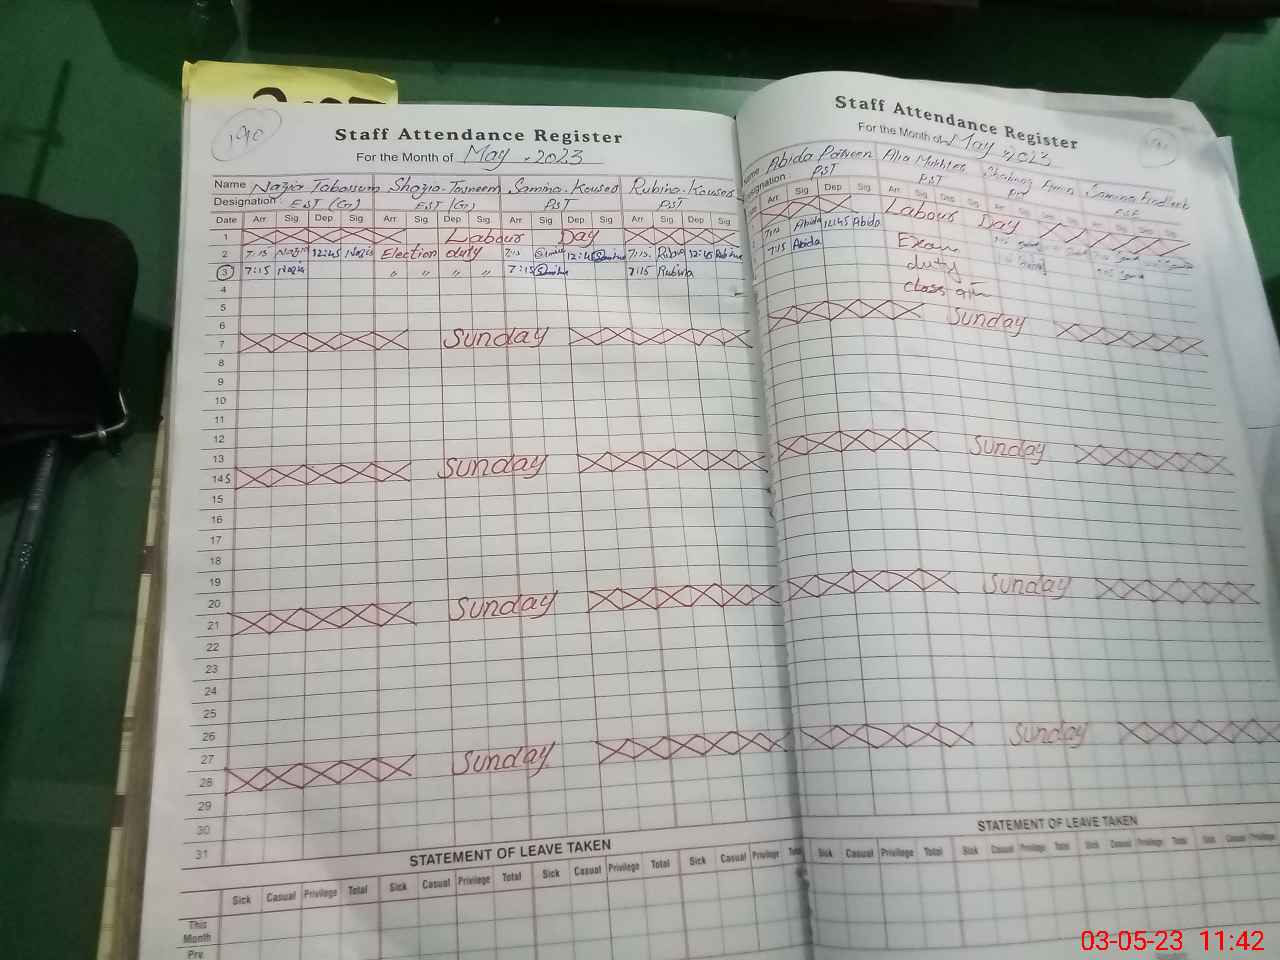 190
Staff Attendance Register
For the Month of May . 2023
Name Nazia Tabassum Shazia-Tasneem Samina-Kouser Rubina-Kouser
Designation: EST (G) EST (G) PST PST
Date Arr Sig Dep Sig Arr Sig Dep Sig Arr Sig Dep Sig Arr Sig Dep Sig
1 Labour Day
2 7:15 Nazia 12:45 Nazia Election duty 7:15 12:45 7:15 Rubina 12:45 Rubina
3 7:15 Nazia " " " " 7:15 7:15 Rubina
4
5
6
7 Sunday
8
9
10
11
12
13
14 Sunday
15
16
17
18
19
20
21 Sunday
22
23
24
25
26
27
28 Sunday
29
30
31
STATEMENT OF LEAVE TAKEN
Sick Casual Privilege Total Sick Casual Privilege Total Sick Casual Privilege Total
This Month
Prv.
Staff Attendance Register
For the Month of May . 2023
Name Abida Parveen
Designation: PST PST
Arr Sig Dep Sig Arr Sig Dep Sig
Labour Day
7:15 Abida 12:45 Abida Exam
7:15 Abida duty
class
Sunday
Sunday
Sunday
Sunday
STATEMENT OF LEAVE TAKEN
Sick Casual Privilege Total Sick Casual Privilege Total Sick Casual Privilege Total Sick Casual Privilege
03-05-23 11:42